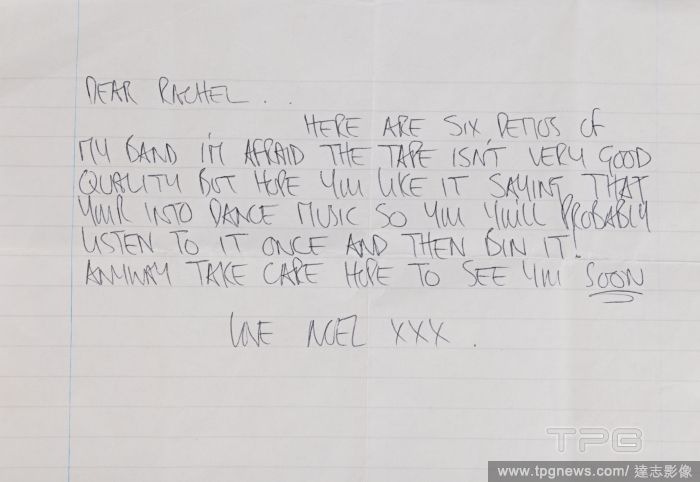 DEAR RACHEL . .
HERE ARE SIX DEMOS OF
MY BAND I'M AFRAID THE TAPE ISN'T VERY GOOD
QUALITY BUT HOPE YOU LIKE IT SAYING THAT
YOUR INTO DANCE MUSIC SO YOU YOU'LL PROBABLY
LISTEN TO IT ONCE AND THEN BIN IT!
ANYWAY TAKE CARE HOPE TO SEE YOU SOON
LOVE NOEL XXX .
TPG
www.tpgnews.com/ 達志影像